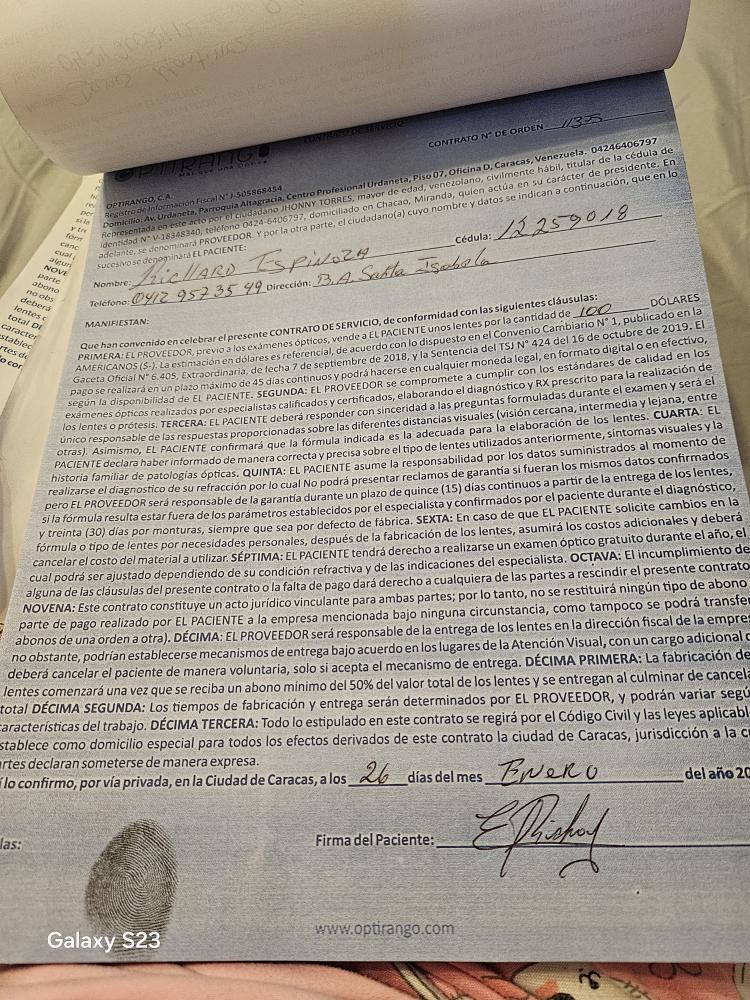 CONTRATO DE SERVICIO
CONTRATO N° DE ORDEN 11375
OPTIRANGO
OPTIRANGO, C.A.
Registro de Información Fiscal N° J-505868454
Domicilio: Av. Urdaneta, Parroquia Altagracia, Centro Profesional Urdaneta, Piso 07, Oficina D, Caracas, Venezuela. 04246406797
Representada en este acto por el ciudadano JHONNY TORRES, mayor de edad, venezolano, civilmente hábil, titular de la cédula de
identidad N° V-18348340, teléfono 0424-6406797, domiciliado en Chacao, Miranda, quien actúa en su carácter de presidente. En
adelante, se denominará PROVEEDOR. Y por la otra parte, el ciudadano(a) cuyo nombre y datos se indican a continuación, que en lo
sucesivo se denominará EL PACIENTE:
Nombre: Richard Espinoza Cédula: 12259018
Teléfono: 0412 957 35 49 Dirección: B.A. Santa Isabela
MANIFIESTAN:
Que han convenido en celebrar el presente CONTRATO DE SERVICIO, de conformidad con las siguientes cláusulas:
PRIMERA: EL PROVEEDOR, previo a los exámenes ópticos, vende a EL PACIENTE unos lentes por la cantidad de 100 DÓLARES
AMERICANOS ($-). La estimación en dólares es referencial, de acuerdo con lo dispuesto en el Convenio Cambiario N° 1, publicado en la
Gaceta Oficial N° 6.405, Extraordinaria, de fecha 7 de septiembre de 2018, y la Sentencia del TSJ N° 424 del 16 de octubre de 2019. El
pago se realizará en un plazo máximo de 45 días continuos y podrá hacerse en cualquier moneda legal, en formato digital o en efectivo,
según la disponibilidad de EL PACIENTE. SEGUNDA: EL PROVEEDOR se compromete a cumplir con los estándares de calidad en los
exámenes ópticos realizados por especialistas calificados y certificados, elaborando el diagnóstico y RX prescrito para la realización de
los lentes o prótesis. TERCERA: EL PACIENTE deberá responder con sinceridad a las preguntas formuladas durante el examen y será el
único responsable de las respuestas proporcionadas sobre las diferentes distancias visuales (visión cercana, intermedia y lejana, entre
otras). Asimismo, EL PACIENTE confirmará que la fórmula indicada es la adecuada para la elaboración de los lentes. CUARTA: EL
PACIENTE declara haber informado de manera correcta y precisa sobre el tipo de lentes utilizados anteriormente, síntomas visuales y la
historia familiar de patologías ópticas. QUINTA: EL PACIENTE asume la responsabilidad por los datos suministrados al momento de
realizarse el diagnostico de su refracción por lo cual No podrá presentar reclamos de garantía si fueran los mismos datos confirmados
pero EL PROVEEDOR será responsable de la garantía durante un plazo de quince (15) días continuos a partir de la entrega de los lentes,
si la fórmula resulta estar fuera de los parámetros establecidos por el especialista y confirmados por el paciente durante el diagnóstico,
y treinta (30) días por monturas, siempre que sea por defecto de fábrica. SEXTA: En caso de que EL PACIENTE solicite cambios en la
fórmula o tipo de lentes por necesidades personales, después de la fabricación de los lentes, asumirá los costos adicionales y deberá
cancelar el costo del material a utilizar. SÉPTIMA: EL PACIENTE tendrá derecho a realizarse un examen óptico gratuito durante el año, el
cual podrá ser ajustado dependiendo de su condición refractiva y de las indicaciones del especialista. OCTAVA: El incumplimiento de
alguna de las cláusulas del presente contrato o la falta de pago dará derecho a cualquiera de las partes a rescindir el presente contrato
NOVENA: Este contrato constituye un acto jurídico vinculante para ambas partes; por lo tanto, no se restituirá ningún tipo de abono
parte de pago realizado por EL PACIENTE a la empresa mencionada bajo ninguna circunstancia, como tampoco se podrá transfer
abonos de una orden a otra). DÉCIMA: EL PROVEEDOR será responsable de la entrega de los lentes en la dirección fiscal de la empre
no obstante, podrían establecerse mecanismos de entrega bajo acuerdo en los lugares de la Atención Visual, con un cargo adicional
deberá cancelar el paciente de manera voluntaria, solo si acepta el mecanismo de entrega. DÉCIMA PRIMERA: La fabricación de
lentes comenzará una vez que se reciba un abono mínimo del 50% del valor total de los lentes y se entregan al culminar de cancela
total DÉCIMA SEGUNDA: Los tiempos de fabricación y entrega serán determinados por EL PROVEEDOR, y podrán variar segú
características del trabajo. DÉCIMA TERCERA: Todo lo estipulado en este contrato se regirá por el Código Civil y las leyes aplicabl
stablece como domicilio especial para todos los efectos derivados de este contrato la ciudad de Caracas, jurisdicción a la cu
artes declaran someterse de manera expresa.
í lo confirmo, por vía privada, en la Ciudad de Caracas, a los 26 días del mes Enero del año 20
las:
Firma del Paciente:
www.optirango.com
Galaxy S23